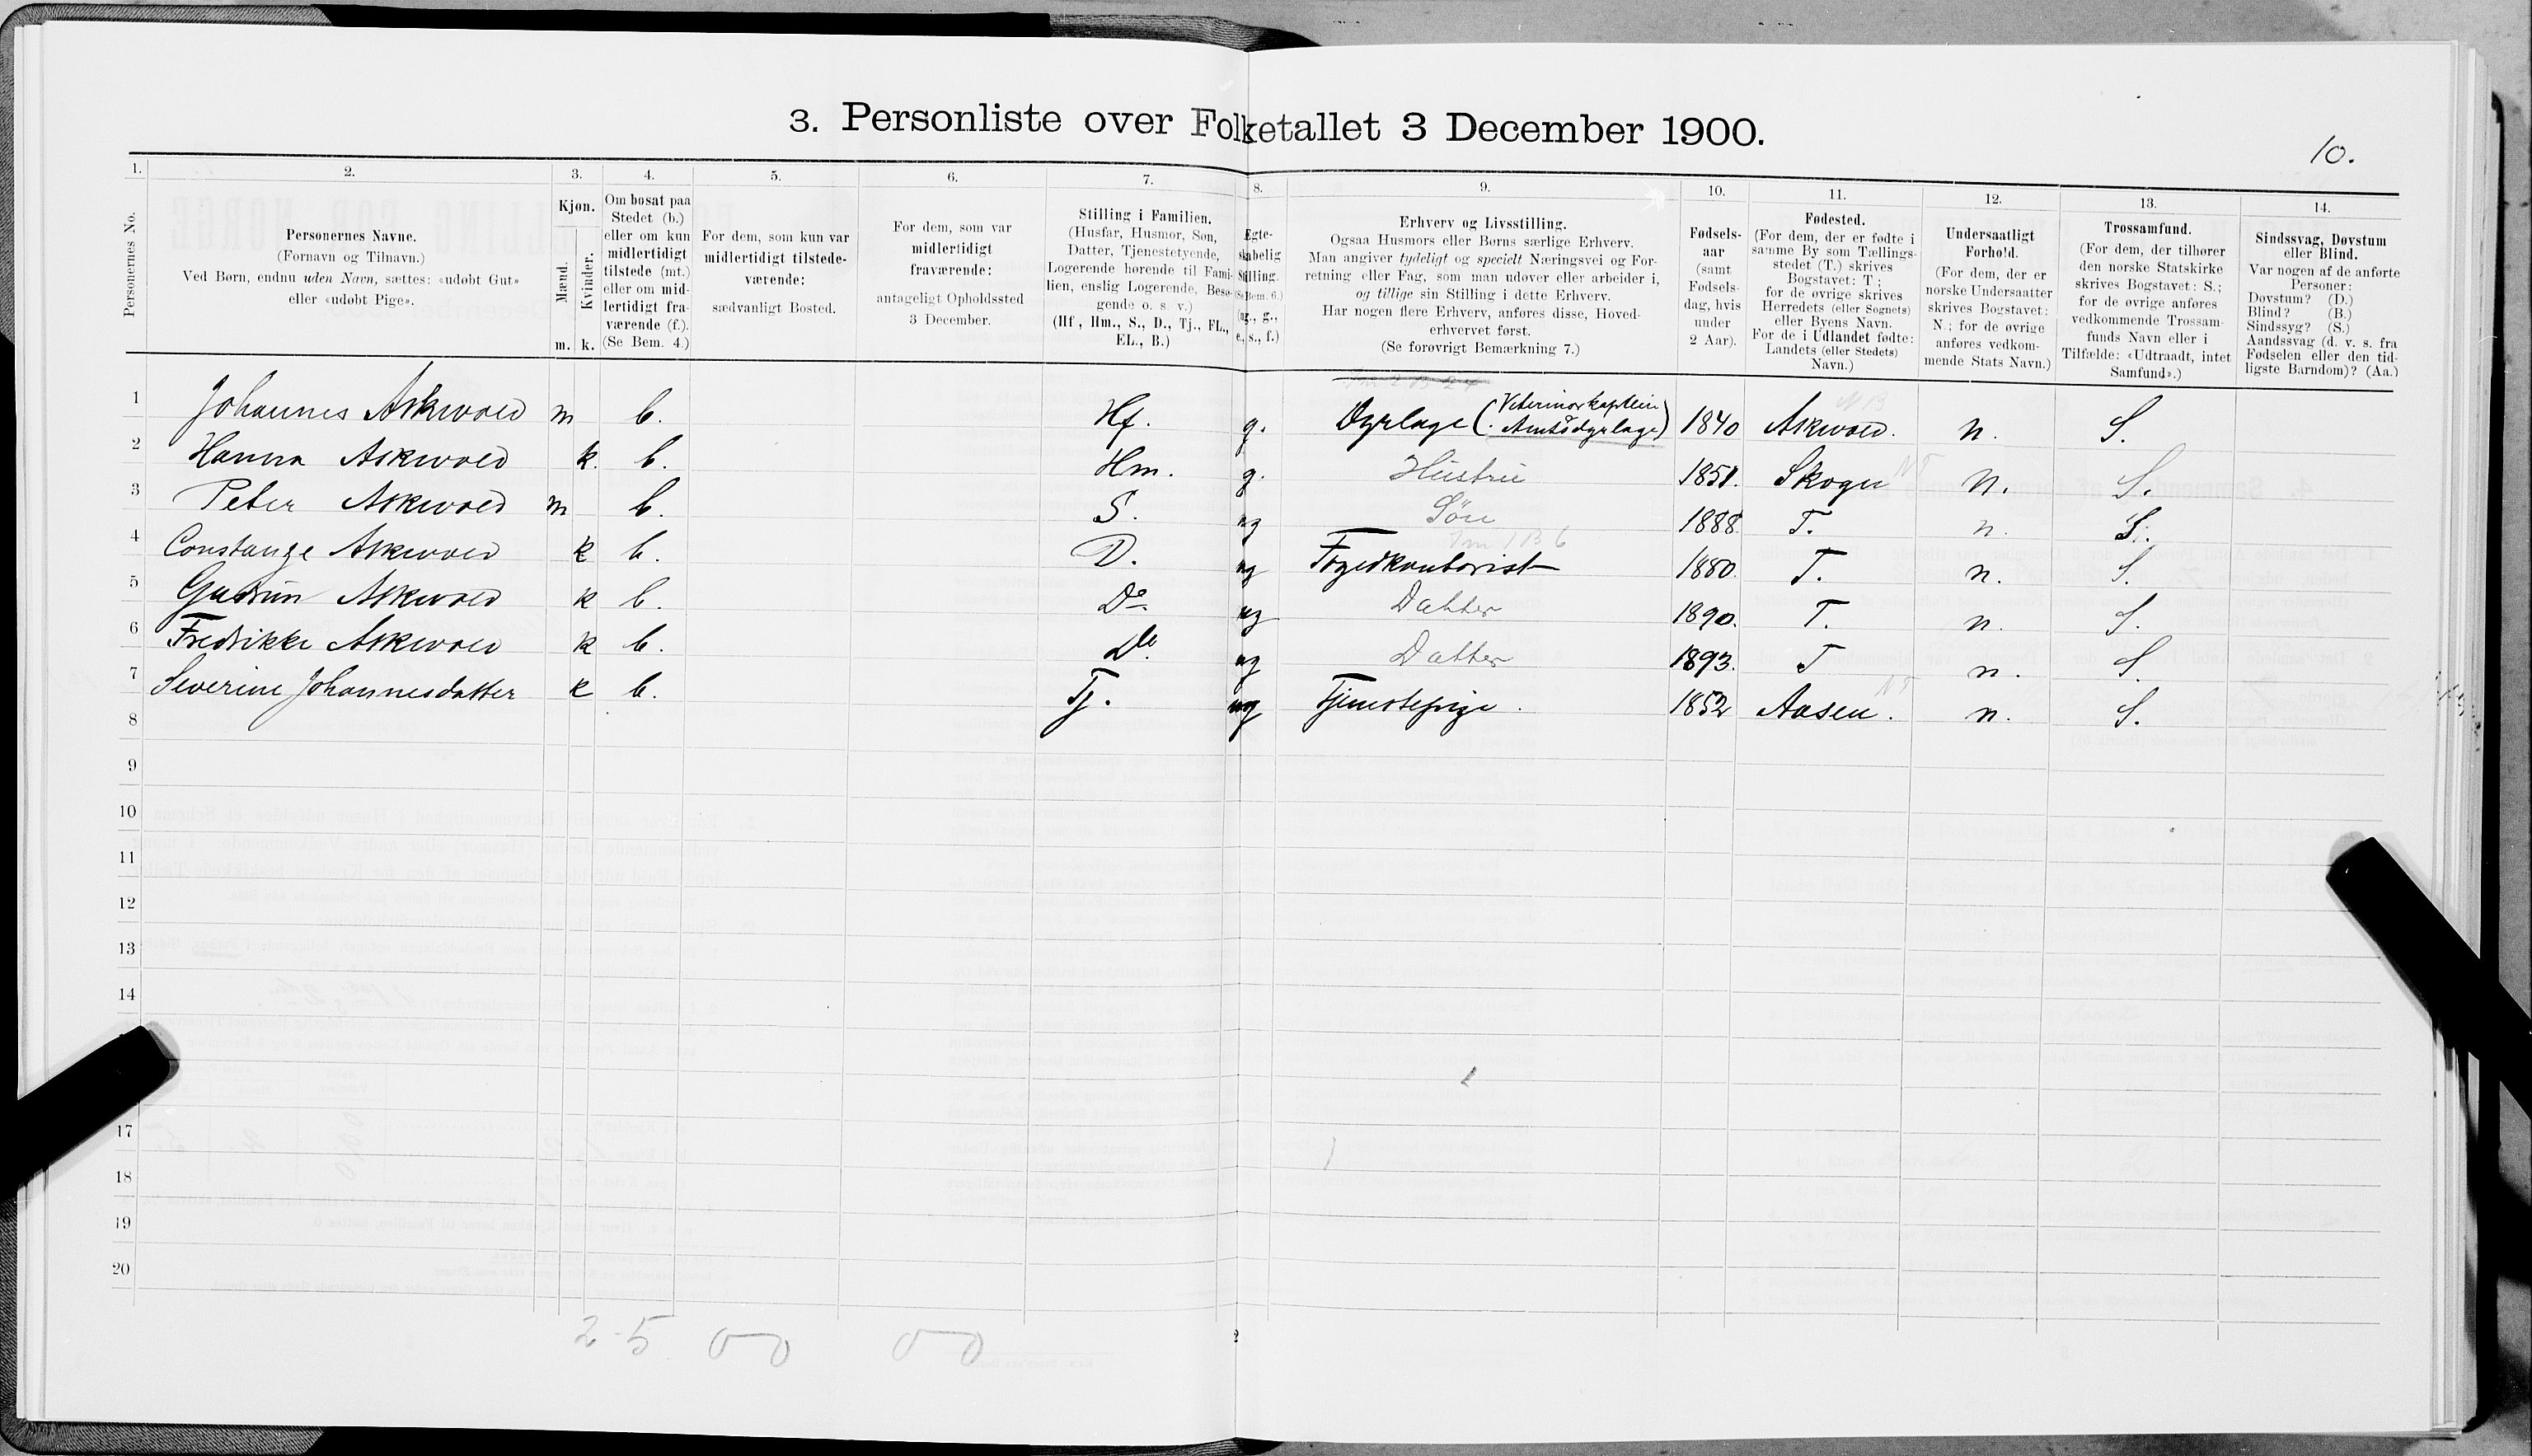 3. Personliste over Folketallet 3 December 1900.
10.
1. 2. 3. 4. 5. 6. 7. 8. 9. 10. 11. 12. 13. 14.
Personernes No.
Personernes Navne.
(Fornavn og Tilnavn.)
Ved Børn, endnu uden Navn, sættes: «udøbt Gut»
eller «udøbt Pige».
Kjøn.
Mænd.
Kvinder.
m. k.
Om bosat paa
Stedet (b.)
eller om kun
midlertidigt
tilstede (mt.)
eller om mid-
lertidigt fra-
værende (f.).
(Se Bem. 4.)
For dem, som kun var
midlertidigt tilstede-
værende:
sædvanligt Bosted.
For dem, som var
midlertidigt
fraværende:
antageligt Opholdssted
3 December.
Stilling i Familien.
(Husfar, Husmor, Søn,
Datter, Tjenestetyende,
Logerende hørende til Fami-
lien, enslig Logerende, Besø-
gende o. s. v.)
(Hf, Hm., S., D., Tj., FL.,
EL., B.)
Egte-
skabelig
Stilling.
(Se Bem. 6.)
(ug., g.,
e., s., f.)
Erhverv og Livsstilling.
Ogsaa Husmors eller Børns særlige Erhverv.
Man angiver tydeligt og specielt Næringsvei og For-
retning eller Fag, som man udøver eller arbeider i,
og tillige sin Stilling i dette Erhverv.
Har nogen flere Erhverv, anføres disse, Hoved-
erhvervet først.
(Se forøvrigt Bemærkning 7.)
Fødsels-
aar
(samt
Fødsels-
dag, hvis
under
2 Aar).
Fødested.
(For dem, der er fødte i
samme By som Tællings-
stedet (T.) skrives
Bogstavet: T;
for de øvrige skrives
Herredets (eller Sognets)
eller Byens Navn.
For de i Udlandet fødte:
Landets (eller Stedets)
Navn.)
Undersaatligt
Forhold.
(For dem, der er
norske Undersaatter
skrives Bogstavet:
N.; for de øvrige
anføres vedkom-
mende Stats Navn.)
Trossamfund.
(For dem, der tilhører
den norske Statskirke
skrives Bogstavet: S.;
for de øvrige anføres
vedkommende Trossam-
funds Navn eller i
Tilfælde: «Udtraadt, intet
Samfund».)
Sindssvag, Døvstum
eller Blind.
Var nogen af de anførte
Personer:
Døvstum? (D.)
Blind? (B.)
Sindssyg? (S.)
Aandssvag (d. v. s. fra
Fødselen eller den tid-
ligste Barndom)? (Aa.)
1 Johannes Askvold m b. Hf. g. Dyrlæge (Veterinærkaptein Amtsdyrlæge) 1840 Askvold. n. S.
2 Hanna Askvold k. b. Hm. g. Hustru 1851. Skogn n. S.
3 Peter Askvold m b. S. ug Søn 1888. T. n. S.
4 Constanze Askvold k b. D. ug Fogedkontorist 1880. T. n. S.
5 Gudrun Askvold k b. Do ug Datter 1890. T. n. S.
6 Fredrikke Askvold k b. Do ug Datter 1893. T n. S.
7 Severine Johannesdatter k b. Tj. ug Tjenestepige. 1852 Aasen. n. S.
8
9
10
11
12
13
14
17
18
19
20
2-5 0-0 0-0
2